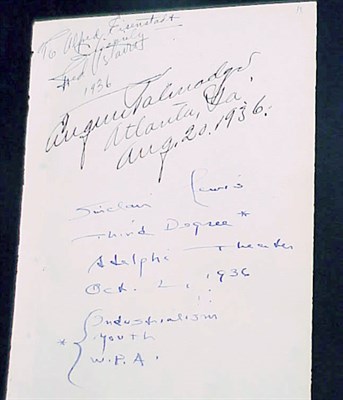 To Alfred Eisenstadt
Sincerely
Fred Astaire
1936
Eugene Talmadge
Atlanta, Ga.
Aug. 20. 1936.
Sinclair Lewis
Third Degree *
Adelphi Theater
Oct. 2, 1936
* { Industrialism
Youth
W.P.A.